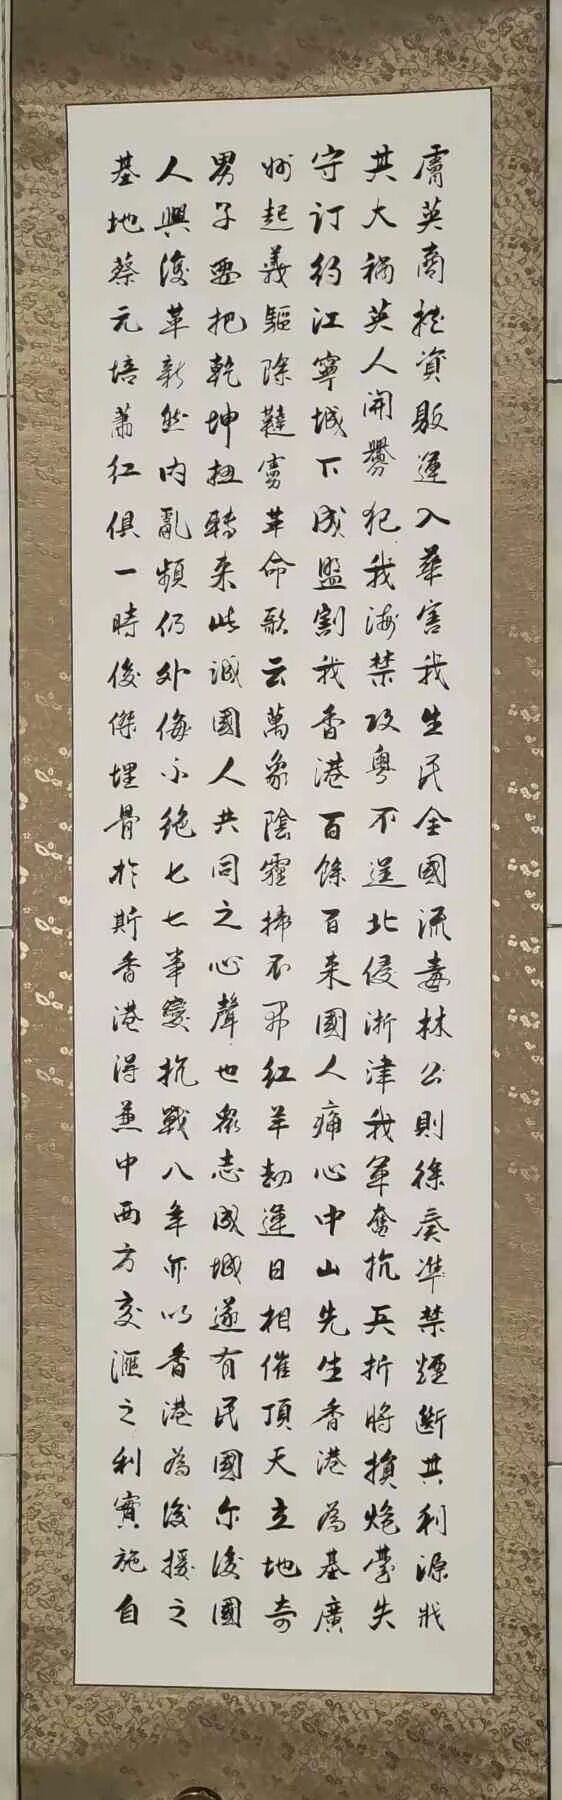 膚英商挾資販運入華害我生民全國流毒林公則徐奏準禁煙斷其利源戕
其大禍英人開釁犯我海禁攻粵不逞北侵浙津我軍奮抗兵折將損炮臺失
守訂約江寧城下成盟割我香港百餘百來國人痛心中山先生香港為基廣
州起義驅除韃虜革命歌云萬象陰霾掃不開紅羊劫運日相催頂天立地奇
男子要把乾坤扭轉來此誠國人共同之心聲也眾志成城遂有民國尔後國
人興復革新然內亂頻仍外侮不絕七七事變抗戰八年亦以香港為後援之
基地蔡元培蕭紅俱一時俊傑埋骨於斯香港得兼中西方交滙之利實施自